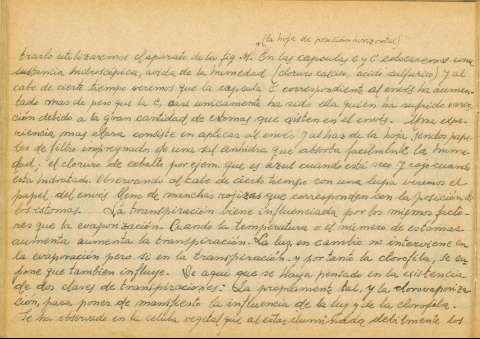 (la hoja de posición horizontal)
trarlo utilizaremos el aparato de la fig M. En las capsulas C y C' colocaremos una
sustancia hidroscópica, avida de la humedad (cloruro calcico, ácido sulfúrico) Y al
cabo de cierto tiempo veremos que la capsula C' correspondiente al envés ha aumen-
tado mas de peso que la C, casi unicamente ha sido ella quien ha sufrido varia-
ción debido a la gran cantidad de estomas que existen en el envés. Otra expe-
riencia mas clara consiste en aplicar al envés y al haz de la hoja sendos pape-
les de filtro impregnados de una sal anhidra que absorba facilmente la hume-
dad; el cloruro de cobalto por ejem. que es azul cuando está seco y rojo cuando
esta hidratado. Observando al cabo de cierto tiempo con una lupa veremos el
papel del envés lleno de manchas rojizas que corresponden con la posición de
los estomas. La transpiración viene influenciada por los mismos facto-
res que la evaporación. Cuando la temperatura o el número de estomas
aumenta aumenta la transpiración. La luz, en cambio no interviene en
la evaporación pero si en la transpiración, y por tanto la clorofila, se su-
pone que tambien influye. De aqui que se haya pensado en la existencia
de dos clases de transpiraciones: La propiamente tal, y la clorovaporiza-
cion, para poner de manifiesto la influencia de la luz y de la clorofila.
Se ha observado en la celula vegetal que al estar iluminadas debilmente los